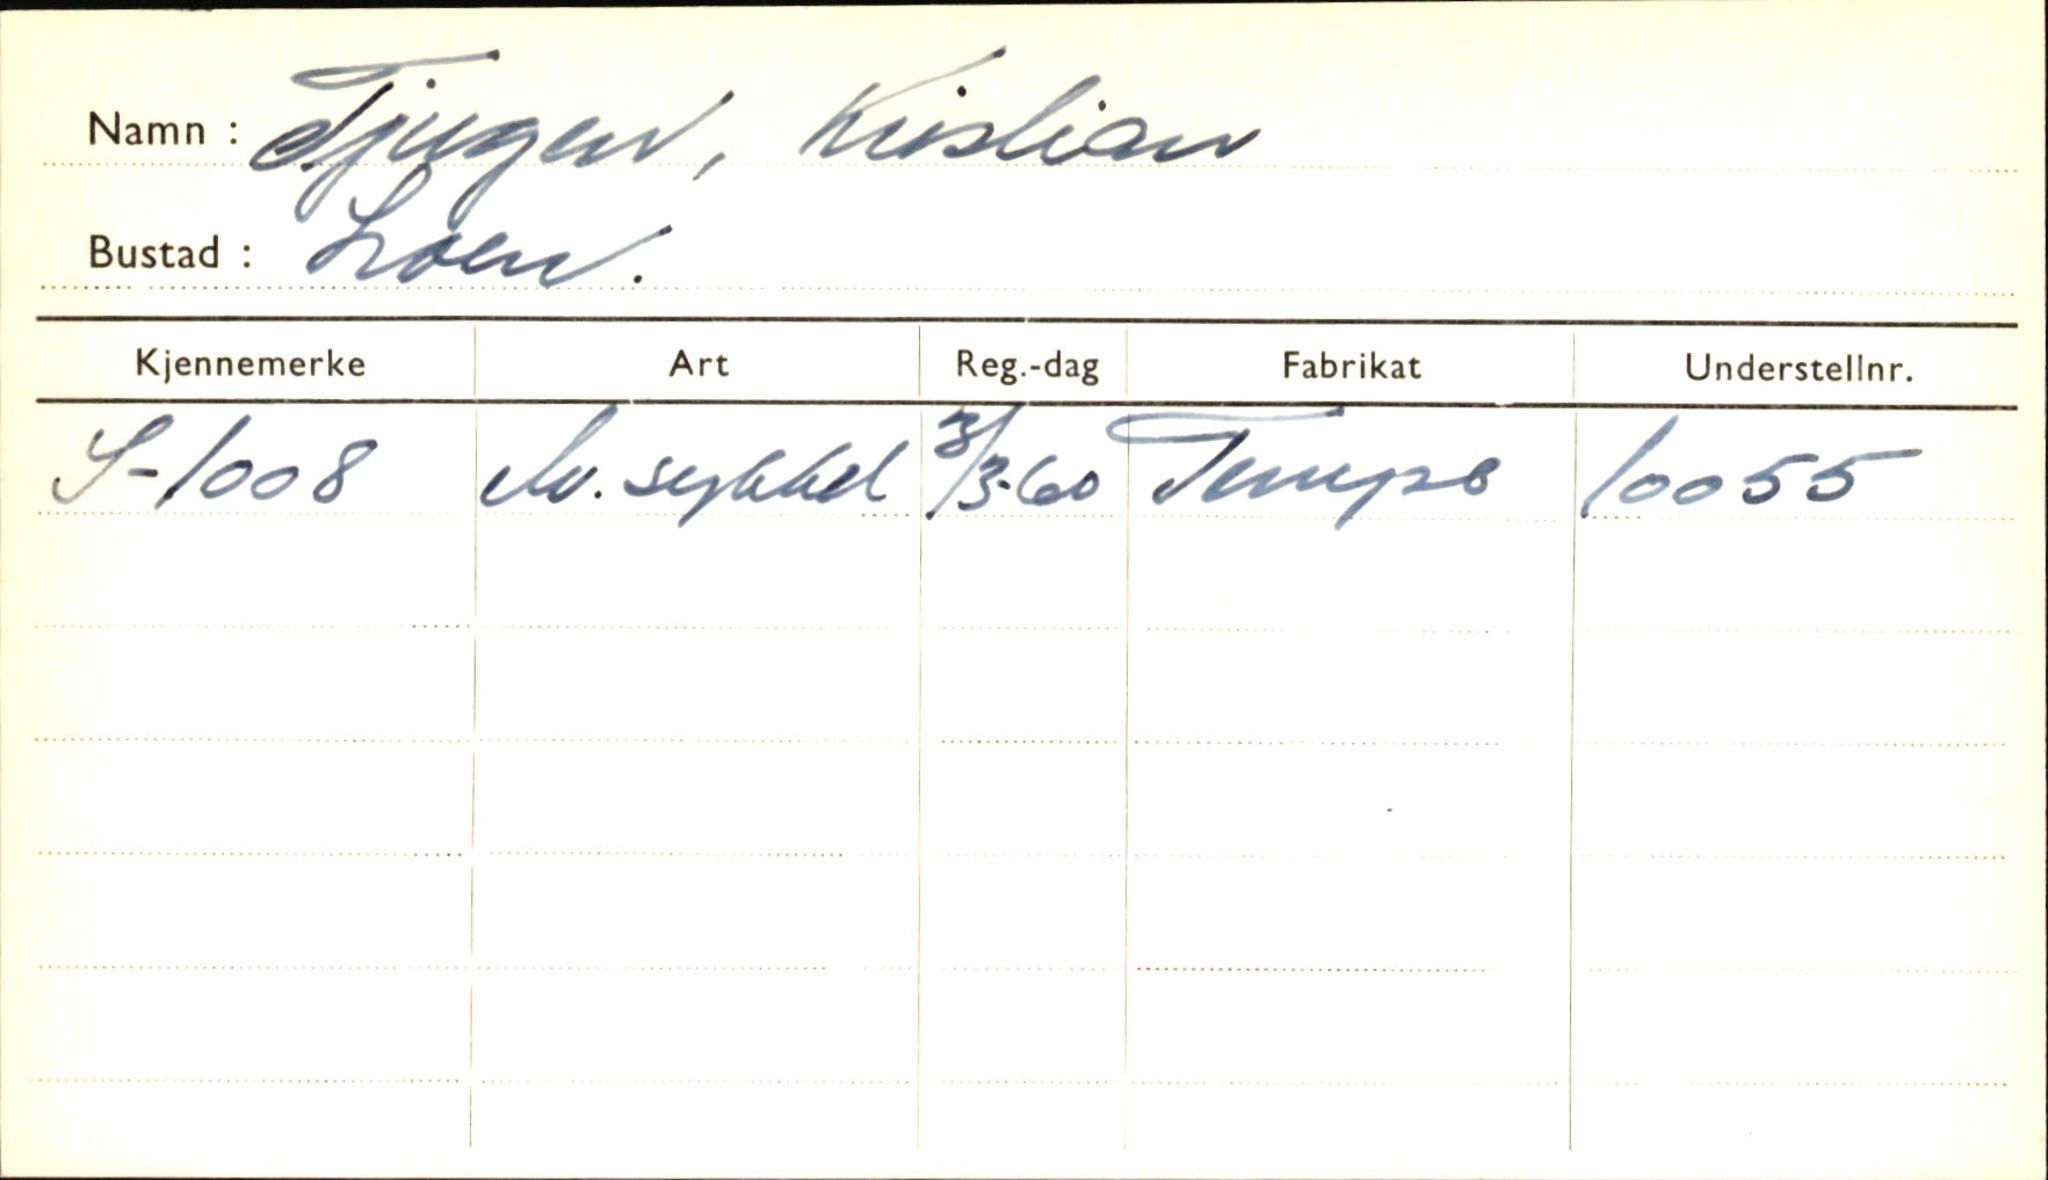 Namn : Tjugen, Kristian
Bustad : Loen.
Kjennemerke Art Reg.-dag Fabrikat Understellnr.
S-1008 M. sykkel 3/3-60 Tempo 10055